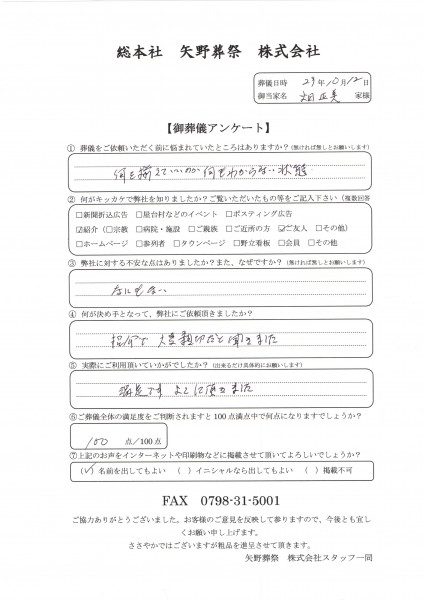 総本社 矢野葬祭 株式会社
葬儀日時 29年10月12日
御当家名 家様
【御葬儀アンケート】
① 葬儀をご依頼いただく前に悩まれていたところはありますか?(無ければ無しとお願いします)
何を揃えていいのか何もわからない状態
② 何がキッカケで弊社を知りましたか?ご覧いただいたもの等をご記入下さい(複数回答
□新聞折込広告 □屋台村などのイベント □ポスティング広告
☑紹介(□宗教 □病院・施設 □ご親族 □ご近所の方 ☑ご友人 □その他)
□ホームページ □参列者 □タウンページ □野立看板 □会員 □その他
③ 弊社に対する不安な点はありましたか?また、なぜですか?(無ければ無しとお願いします)
なにもない
④ 何が決め手となって、弊社にご依頼頂きましたか?
紹介で 大変親切だと聞きました
⑤ 実際にご利用頂いていかがでしたか?(出来るだけ具体的にお願いします)
満足です よくして頂きました
⑥ご葬儀全体の満足度をご判断されますと100点満点中で何点になりますでしょうか?
100 点/100点
⑦上記のお声をインターネットや印刷物などに掲載させて頂いてよろしいでしょうか?
(✓)名前を出してもよい ( )イニシャルなら出してもよい ( )掲載不可
FAX 0798-31-5001
ご協力ありがとうございました。お客様のご意見を反映して参りますので、今後とも宜し
くお願い申し上げます。
ささやかではございますが粗品を進呈させて頂きます。
矢野葬祭 株式会社スタッフ一同